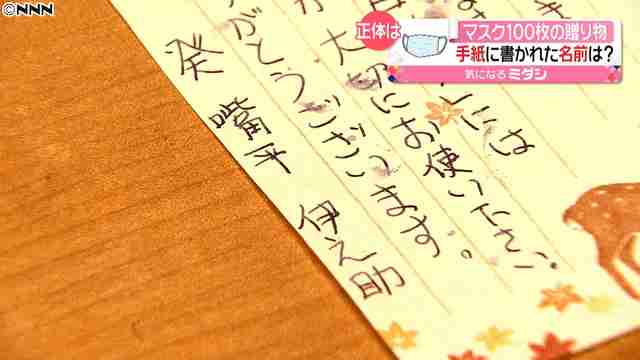 NNN
正体は
マスク100枚の贈り物
手紙に書かれた名前は?
気になるミダシ
には
大切にお使い下さい。
がとうございます。
嘴平 伊之助